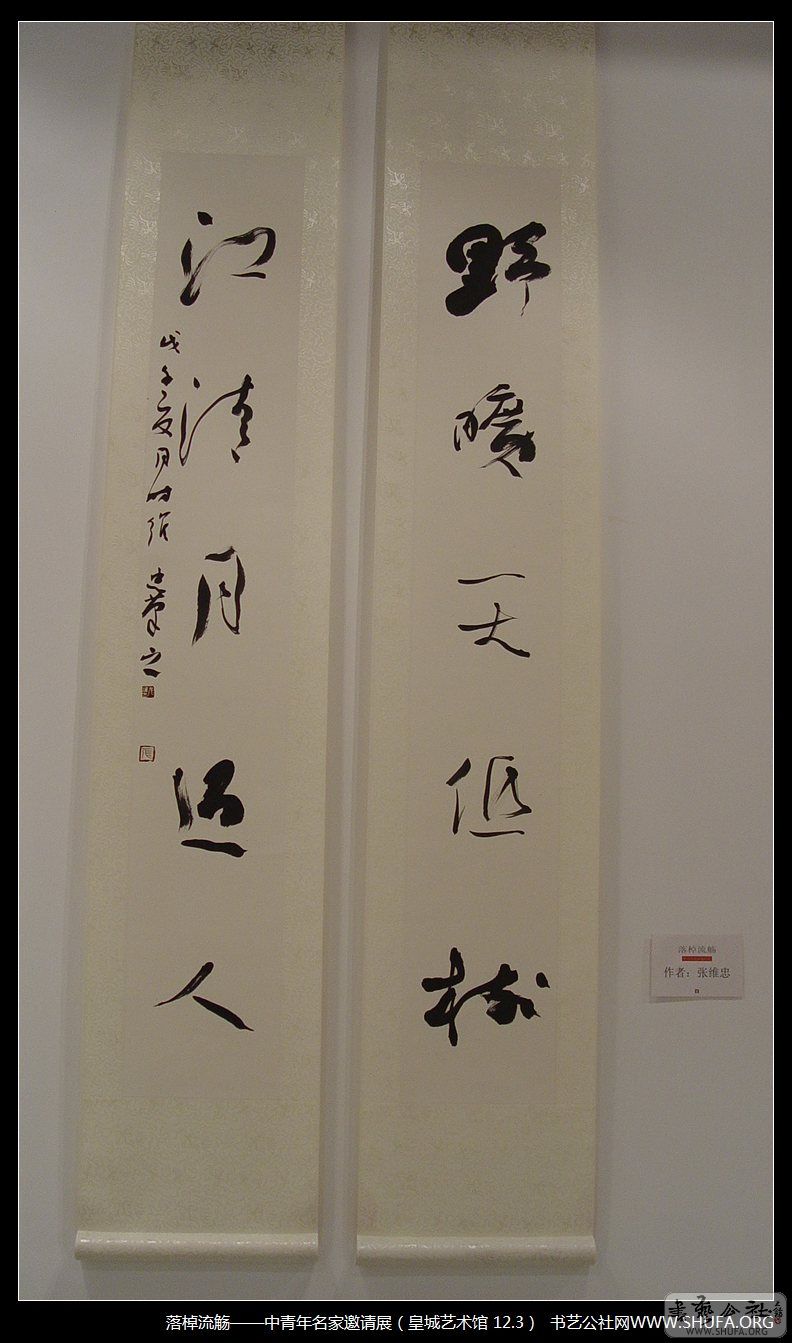 野曠天低樹
江清月近人
戊子夏月
落棹流觞
作者：张维忠
書藝公社
落棹流觞——中青年名家邀请展（皇城艺术馆 12.3） 书艺公社网WWW.SHUFA.ORG